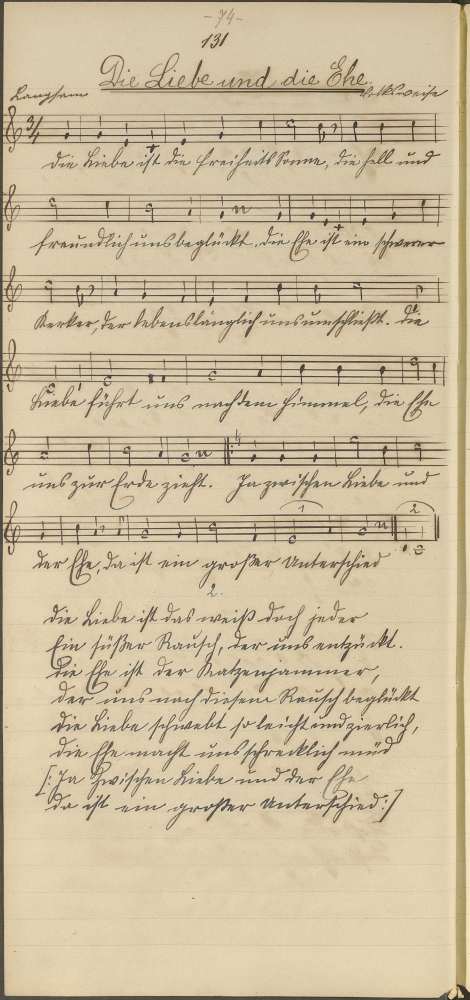 -74-
131
Die Liebe und die Ehe.
Langsam Volksweise
3/4
Die Liebe ist die Freiheits Sonne, die hell und
freundlich uns beglückt. Die Ehe ist ein schwerer
Kerker, der lebenslänglich uns umschließt. Die
Liebe führt uns nach dem Himmel, die Ehe
uns zur Erde zieht. Ja zwischen Liebe und
1 2
der Ehe, da ist ein großer Unterschied
2.
Die Liebe ist das weiß doch jeder
Ein süßer Rausch, der uns entzückt.
Die Ehe ist der Katzenjammer,
der uns nach diesem Rausch beglückt
Die Liebe schwebt so leicht und zierlich,
Die Ehe macht uns schrecklich müd
[: Ja zwischen Liebe und der Ehe
da ist ein großer Unterschied :]